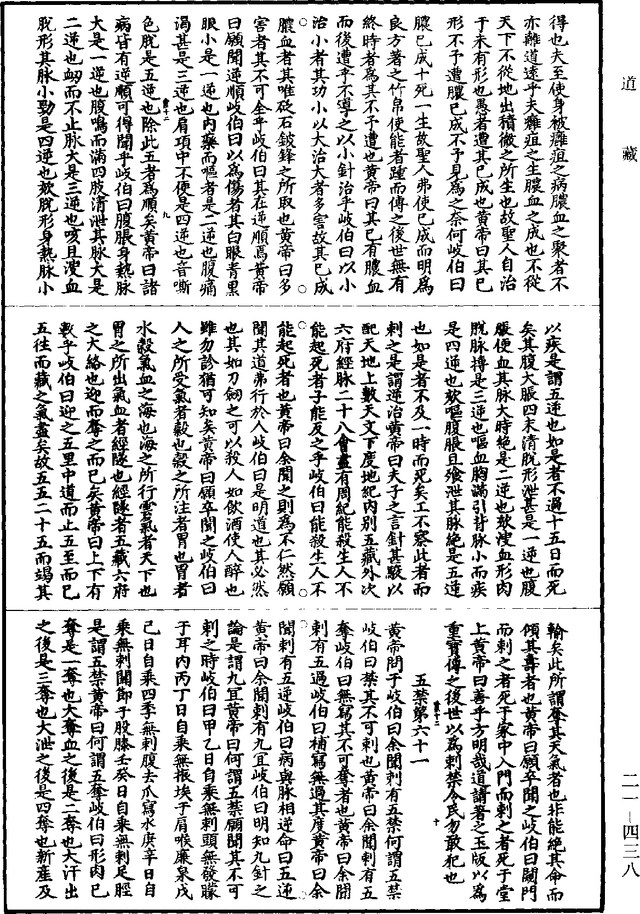 道藏
得也夫至使身被癰疽之病膿血之聚者不
亦離道遠乎夫癰疽之生膿血之成也不從
天下不從地出積微之所生也故聖人自治
于未有形也愚者遭其已成也黃帝曰其已
形不予遭膿已成不予見為之奈何岐伯曰
膿已成十死一生故聖人弗使已成而明為
良方著之竹帛使能者踵而傳之後世無有
終時者為其不予遭也黃帝曰其已有膿血
而後遭乎不導之以小針治乎岐伯曰以小
治小者其功小以大治大者多害故其已成
膿血者其唯砭石鈹鋒之所取也黃帝曰多
害者其不可全乎岐伯曰其在逆順焉黃帝
曰願聞逆順岐伯曰以為傷者其白眼青黑
眼小是一逆也內藥而嘔者是二逆也腹痛
渴甚是三逆也肩項中不便是四逆也音嘶
色脫是五逆也除此五者為順矣黃帝曰諸
病皆有逆順可得聞乎岐伯曰腹脹身熱脈
大是一逆也腹鳴而滿四肢清泄其脈大是
二逆也衄而不止脈大是三逆也咳且溲血
脫形其脈小勁是四逆也欬脫形身熱脈小
以疾是謂五逆也如是者不過十五日而死
矣其腹大脹四末清脫形泄甚是一逆也腹
脹便血其脈大時絕是二逆也欬溲血形肉
脫脈搏是三逆也嘔血胸滿引背脈小而疾
是四逆也欬嘔腹脹且飧泄其脈絕是五逆
也如是者不及一時而死矣工不察此者而
刺之是謂逆治黃帝曰夫子之言針甚駿以
配天地上數天文下度地紀內別五藏外次
六府經脈二十八會盡有周紀能殺生人不
能起死者子能反之乎岐伯曰能殺生人不
能起死者也黃帝曰余聞之則為不仁然願
聞其道弗行於人岐伯曰是明道也其必然
也其如刀劍之可以殺人如飲酒使人醉也
雖勿診猶可知矣黃帝曰願卒聞之岐伯曰
人之所受氣者穀也穀之所注者胃也胃者
水穀氣血之海也海之所行雲氣者天下也
胃之所出氣血者經隧也經隧者五藏六府
之大絡也迎而奪之而已矣黃帝曰上下有
數乎岐伯曰迎之五里中道而止五至而已
五往而藏之氣盡矣故五五二十五而竭其
輸矣此所謂奪其天氣者也非能絕其命而
傾其壽者也黃帝曰願卒聞之岐伯曰闚門
而刺之者死于家中入門而刺之者死于堂
上黃帝曰善乎方明哉道請著之玉版以為
重寶傳之後世以為刺禁令民勿敢犯也
五禁第六十一
黃帝問于岐伯曰余聞刺有五禁何謂五禁
岐伯曰禁其不可刺也黃帝曰余聞刺有五
奪岐伯曰無寫其不可奪者也黃帝曰余聞
刺有五過岐伯曰補寫無過其度黃帝曰余
聞刺有五逆岐伯曰病與脈相逆命曰五逆
黃帝曰余聞刺有九宜岐伯曰明知九針之
論是謂九宜黃帝曰何謂五禁願聞其不可
刺之時岐伯曰甲乙日自乘無刺頭無發矇
于耳內丙丁日自乘無振埃于肩喉廉泉戊
己日自乘四季無刺腹去爪寫水庚辛日自
乘無刺關節于股膝壬癸日自乘無刺足脛
是謂五禁黃帝曰何謂五奪岐伯曰形肉已
奪是一奪也大奪血之後是二奪也大汗出
之後是三奪也大泄之後是四奪也新產及
二一—四三八